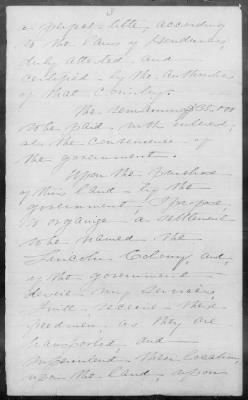 3
a perfect title, according
to the laws of Honduras
duly attested, and
certified by the authorities
of that country.
The remaining $35.000
to be paid, with interest,
at the convenience of
the government.
Upon the purchase
of this land by the
government, I propose
to organize a settlement
to be named the
Lincoln Colony, and,
if the government
desire my services,
I will receive these
freedmen, as they are
transported, and
superintend their location
upon the land, upon